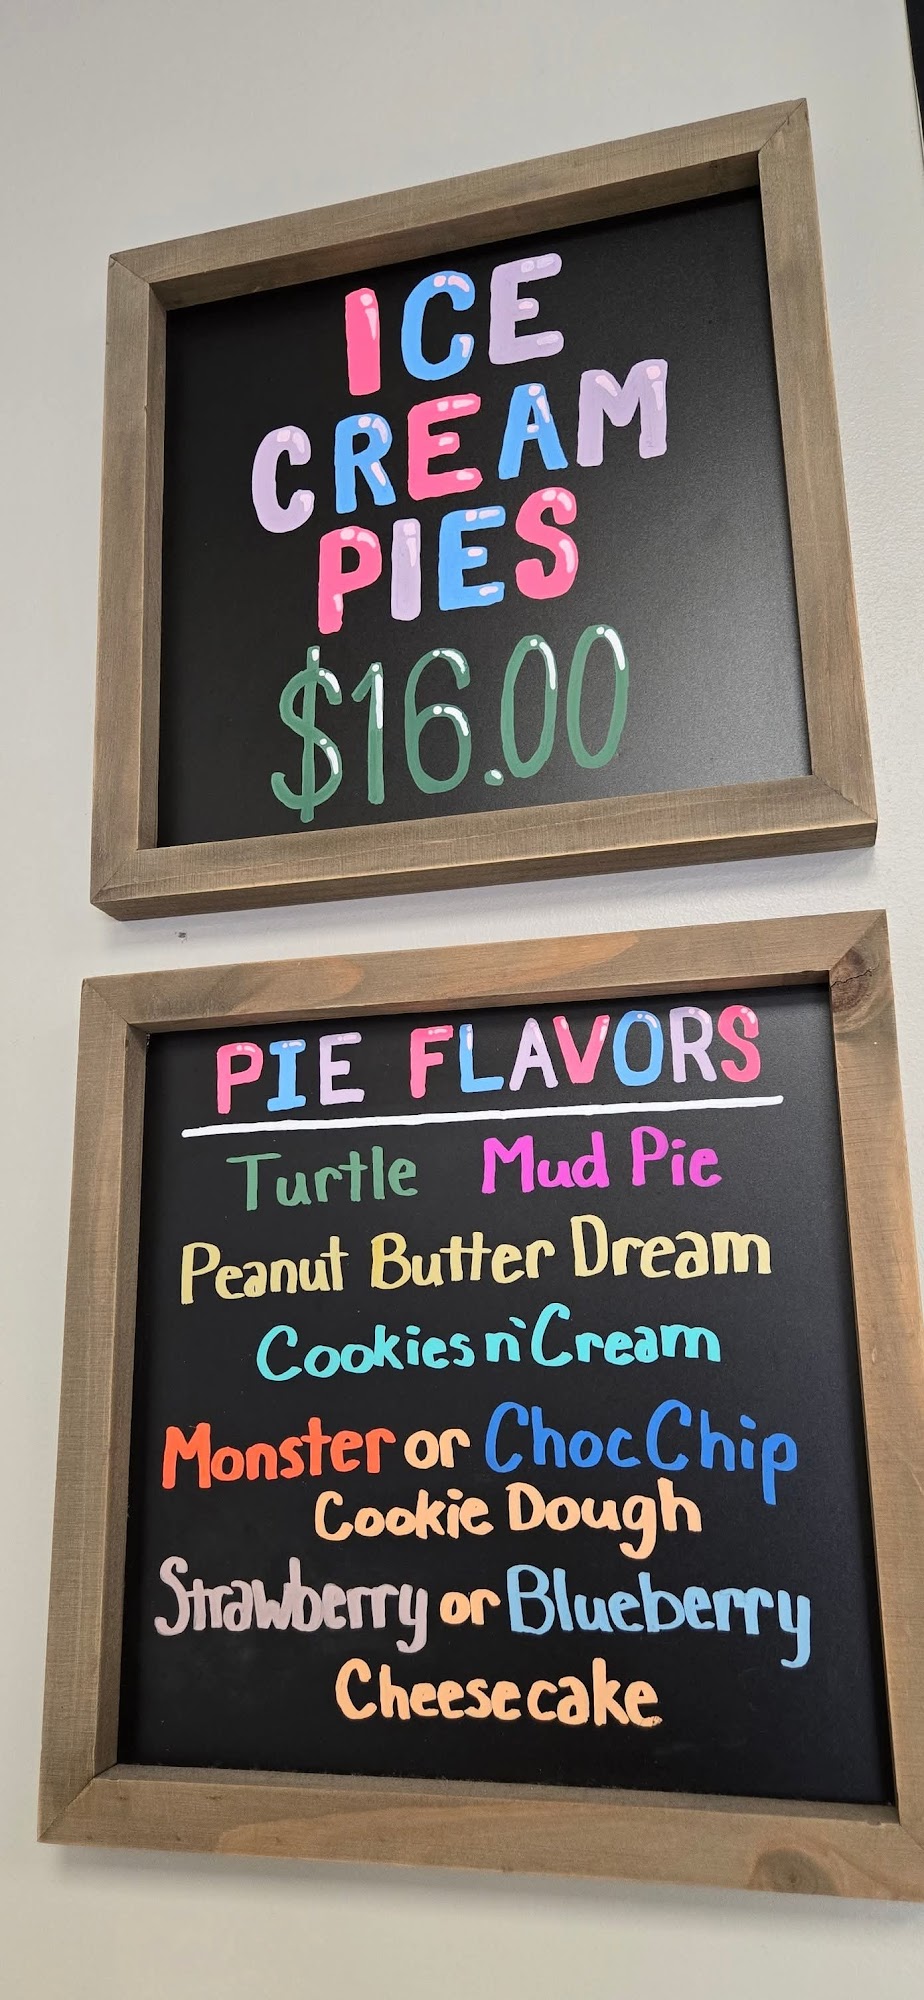 ICE
CREAM
PIES
$16.00
PIE FLAVORS
Turtle Mud Pie
Peanut Butter Dream
Cookies n' Cream
Monster or Choc Chip
Cookie Dough
Strawberry or Blueberry
Cheesecake